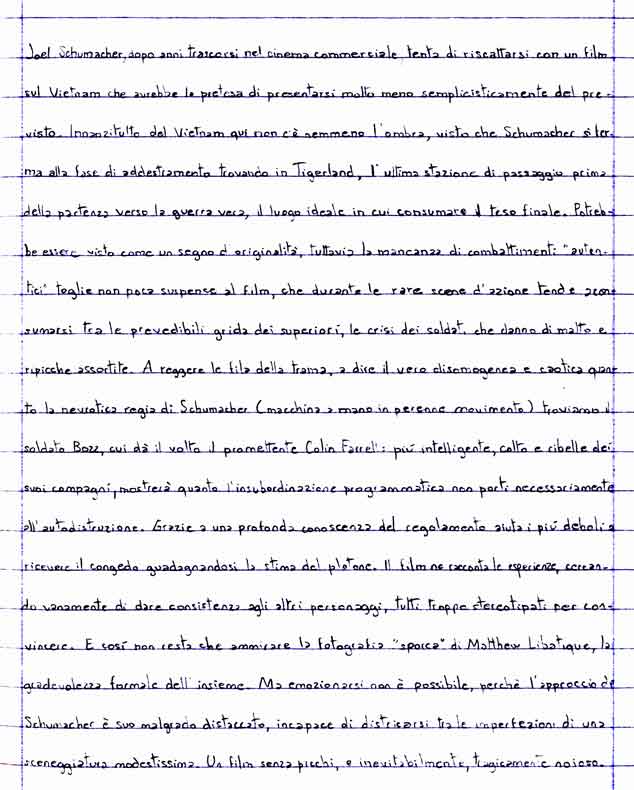 Joel Schumacher, dopo anni trascorsi nel cinema commerciale, tenta di riscattarsi con un film
sul Vietnam che avrebbe la pretesa di presentarsi molto meno semplicisticamente del pre-
visto. Innanzitutto del Vietnam qui non c'è nemmeno l'ombra, visto che Schumacher si fer-
ma alla fase di addestramento trovando in Tigerland, l'ultima stazione di passaggio prima
della partenza verso la guerra vera, il luogo ideale in cui consumare il teso finale. Potreb-
be essere visto come un segno d'originalità, tuttavia la mancanza di combattimenti "auten-
tici" toglie non poca suspense al film, che durante le rare scene d'azione tende a con-
sumarsi tra le prevedibili grida dei superiori, le crisi dei soldati che danno di matto e
ripicche assortite. A reggere le fila della trama, a dire il vero disomogenea e caotica quan-
to la nevrotica regia di Schumacher (macchina a mano in perenne movimento) troviamo il
soldato Bozz, cui dà il volto il promettente Colin Farrel: più intelligente, colto e ribelle dei
suoi compagni, mostrerà quanto l'insubordinazione programmatica non porti necessariamente
all'autodistruzione. Grazie a una profonda conoscenza del regolamento aiuta i più deboli a
ricevere il congedo guadagnandosi la stima del plotone. Il film ne racconta le esperienze, cercan-
do vanamente di dare consistenza agli altri personaggi, tutti troppo stereotipati per con-
vincere. E così non resta che ammirare la fotografia "sporca" di Matthew Libatique, la
gradevolezza formale dell'insieme. Ma emozionarsi non è possibile, perchè l'approccio di
Schumacher è suo malgrado distaccato, incapace di districarsi tra le imperfezioni di una
sceneggiatura modestissima. Un film senza picchi, e inevitabilmente, tragicamente noioso.